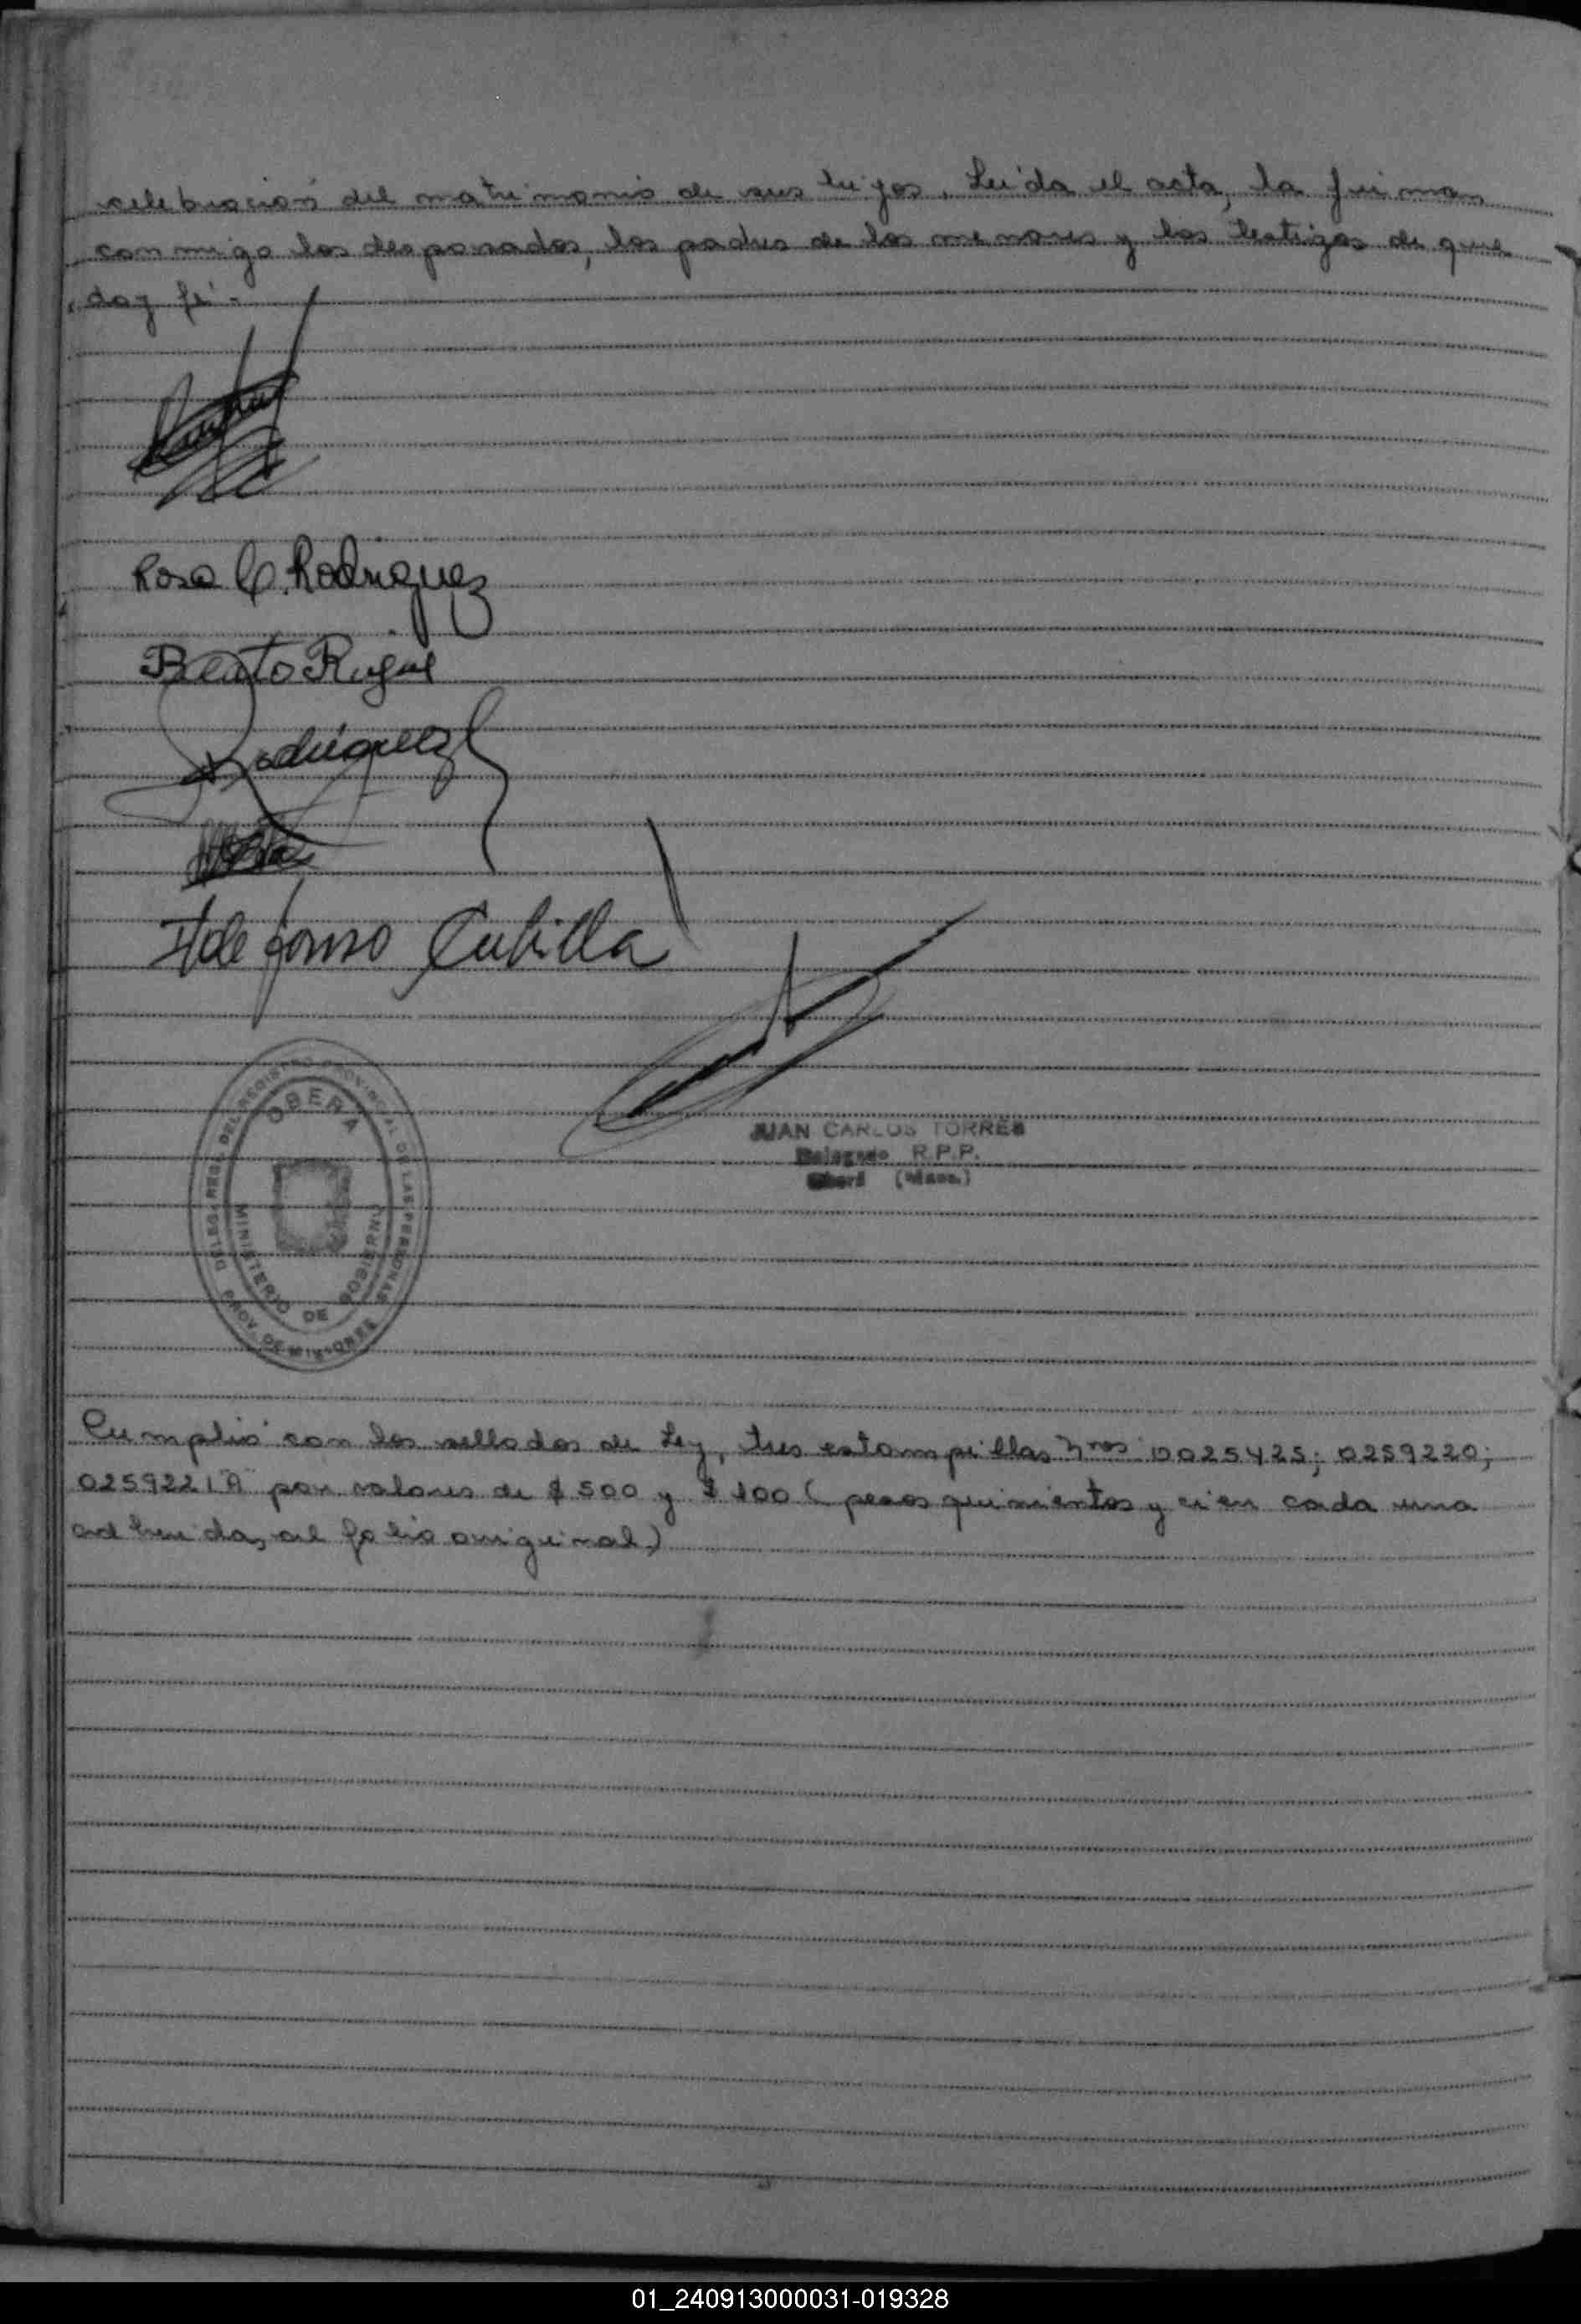 celebración del matrimonio de sus hijos. Leída el acta, la firman
conmigo los desposados, los padres de los menores y los testigos de que
doy fé.-
Rosa C. Rodriguez
Rodriguez
Ildefonso Cubilla
DELEG. REG. DEL REGISTRO PROVINCIAL DE LAS PERSONAS
OBERA
MINISTERIO DE GOBIERNO
PROV. DE MISIONES
JUAN CARLOS TORRES
Delegado R.P.P.
Oberá (Mnes.)
Cumplió con los sellados de Ley, tres estampillas Nros 0025425; 0259220;
0259221 "A" por valores de $ 500 y $ 100 (pesos quinientos y cien cada una
adherida, al folio original)
01_240913000031-019328